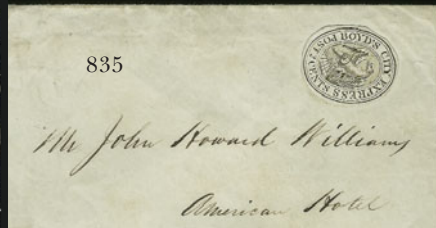 BOYD'S CITY EXPRESS POST
835
Mr John Howard Williams
American Hotel